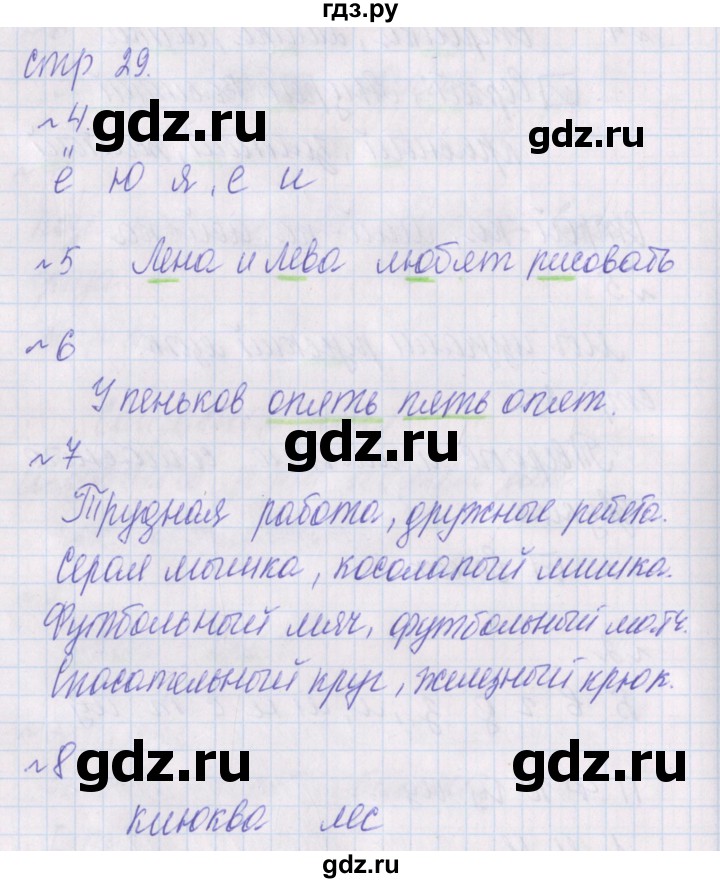 гдз.ру
стр 29.
№4.
gdz.ru
gdz.ru
ё ю я, е и
№5 Лена и Лева любят рисовать
№6
У пеньков опять пять опят.
gdz.ru
№7
Трудная работа, дружные ребята.
Серая мышка, косолапый мишка.
Футбольный мяч, футбольный матч.
Спасательный круг, железный крюк.
№8
gdz.ru
gdz.ru
клюква лес
gdz.ru